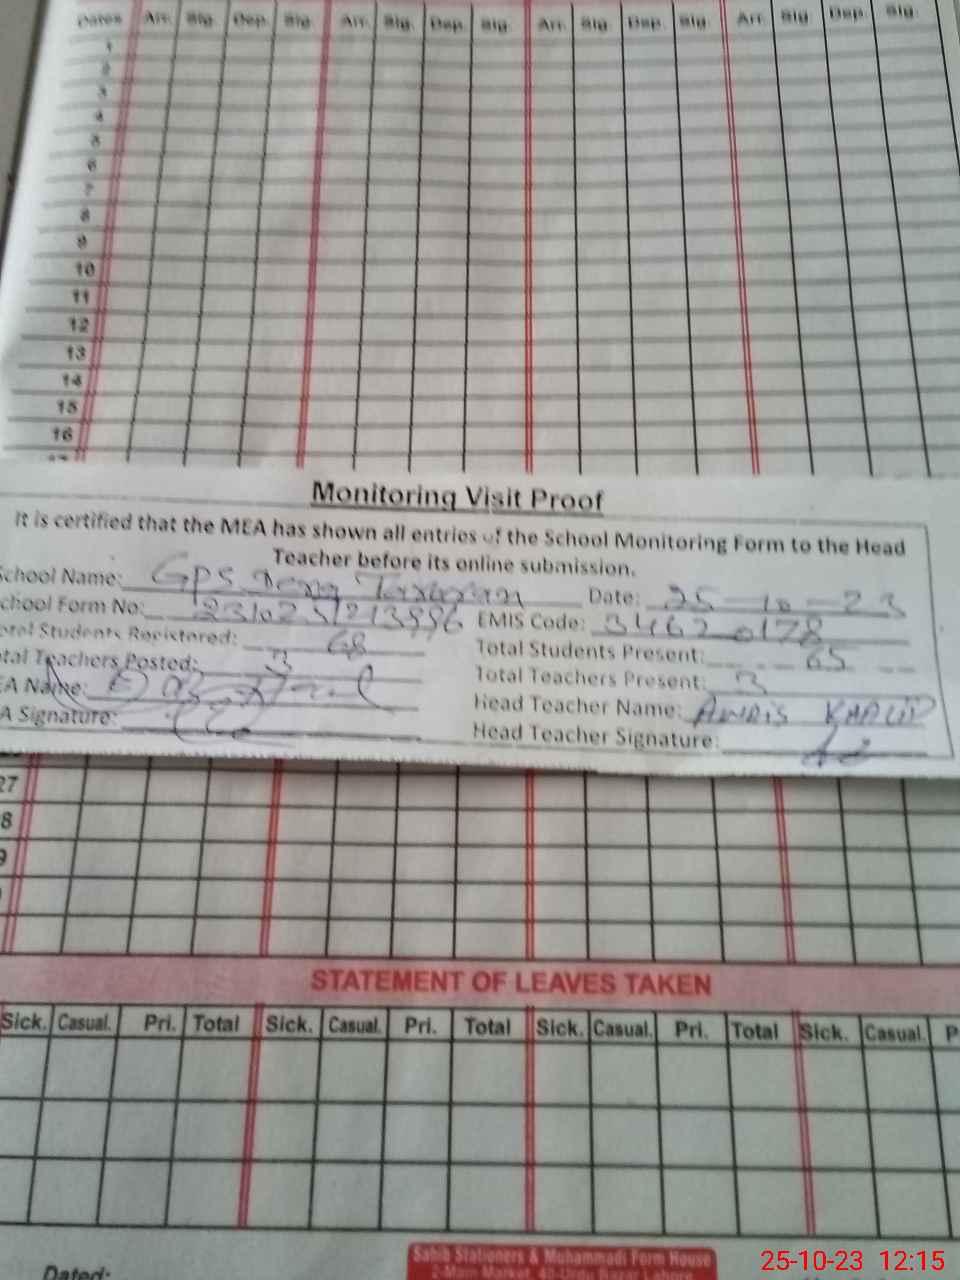 Dates Arr. Sig. Dep. Sig. Arr. Sig. Dep. Sig. Arr. Sig. Dep. Sig. Arr. Sig. Dep. Sig.
1
2
3
4
5
6
7
8
9
10
11
12
13
14
15
16
Monitoring Visit Proof
It is certified that the MEA has shown all entries of the School Monitoring Form to the Head
Teacher before its online submission.
School Name: GPS
Date: 25-10-23
School Form No:
EMIS Code: 34620178
Total Students Registered: 68
Total Students Present: 65
Total Teachers Posted: 3
Total Teachers Present: 3
EA Name:
Head Teacher Name: KHALID
A Signature:
Head Teacher Signature:
27
8
9
STATEMENT OF LEAVES TAKEN
Sick. Casual. Pri. Total Sick. Casual. Pri. Total Sick. Casual. Pri. Total Sick. Casual. P
Dated:
Sahib Stationers & Muhammadi Form House
2-Main Market,
25-10-23 12:15